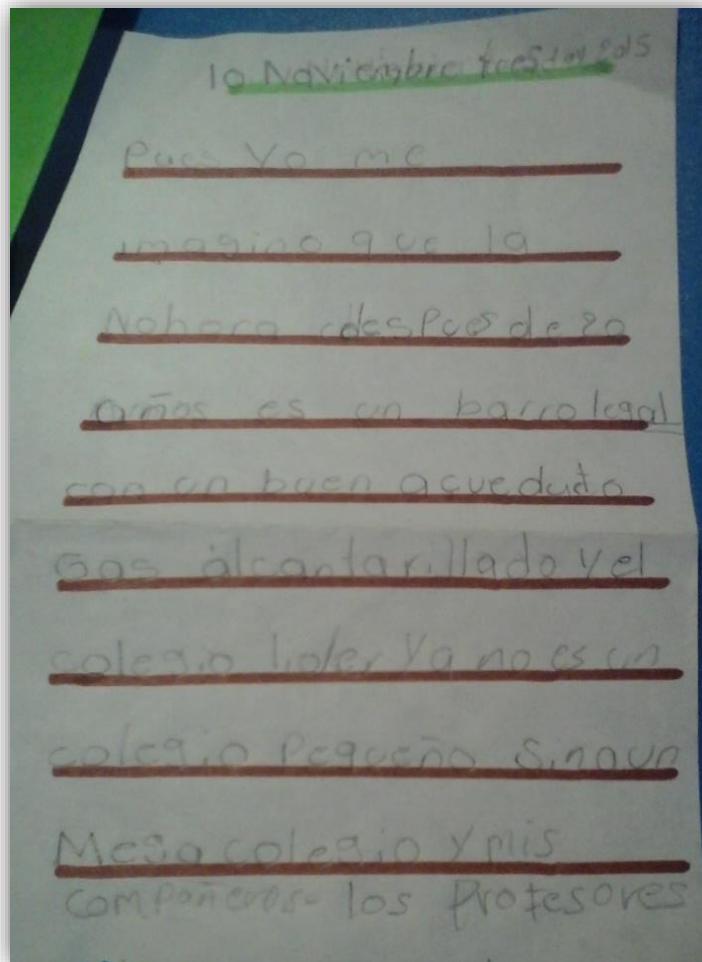 10 Noviembre
Pues Yo me
imagino que la
Nohora despues de 20
años es un barro legal
con un buen acueducto
Gas alcantarillado y el
colegio lider Ya no es un
colegio Pequeño sinoun
Mega colegio y mis
compañeros los Profesores